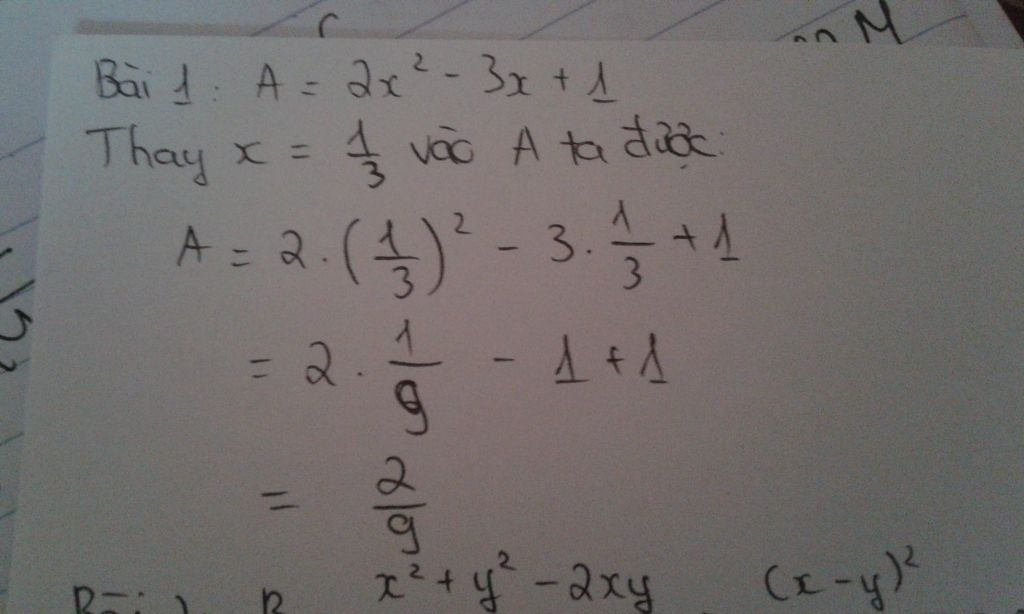 Bài 1: A = 2x² - 3x + 1
Thay x = 1/3 vào A ta được:
A = 2.(1/3)² - 3.1/3 + 1
= 2.1/9 - 1 + 1
= 2/9
x² + y² - 2xy (x - y)²